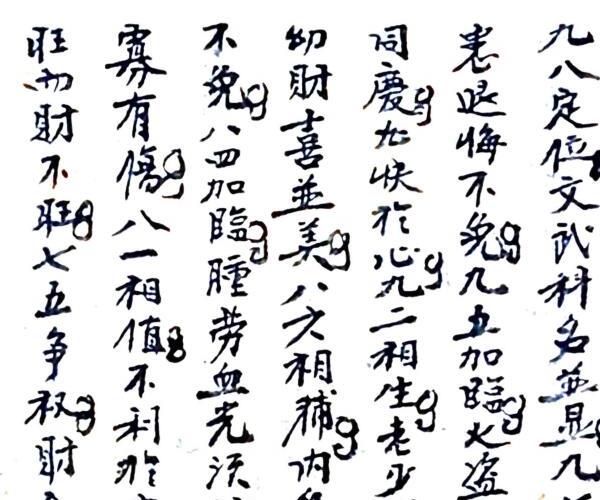 九八定位文武科名並显九
患退悔不免九五加臨火盗
同慶九快於心九二相生老少
幼財喜並美八六相輔内
不免八四加臨腫劳血光须
寡有傷八一相值不利於
旺而財不旺七五争权財